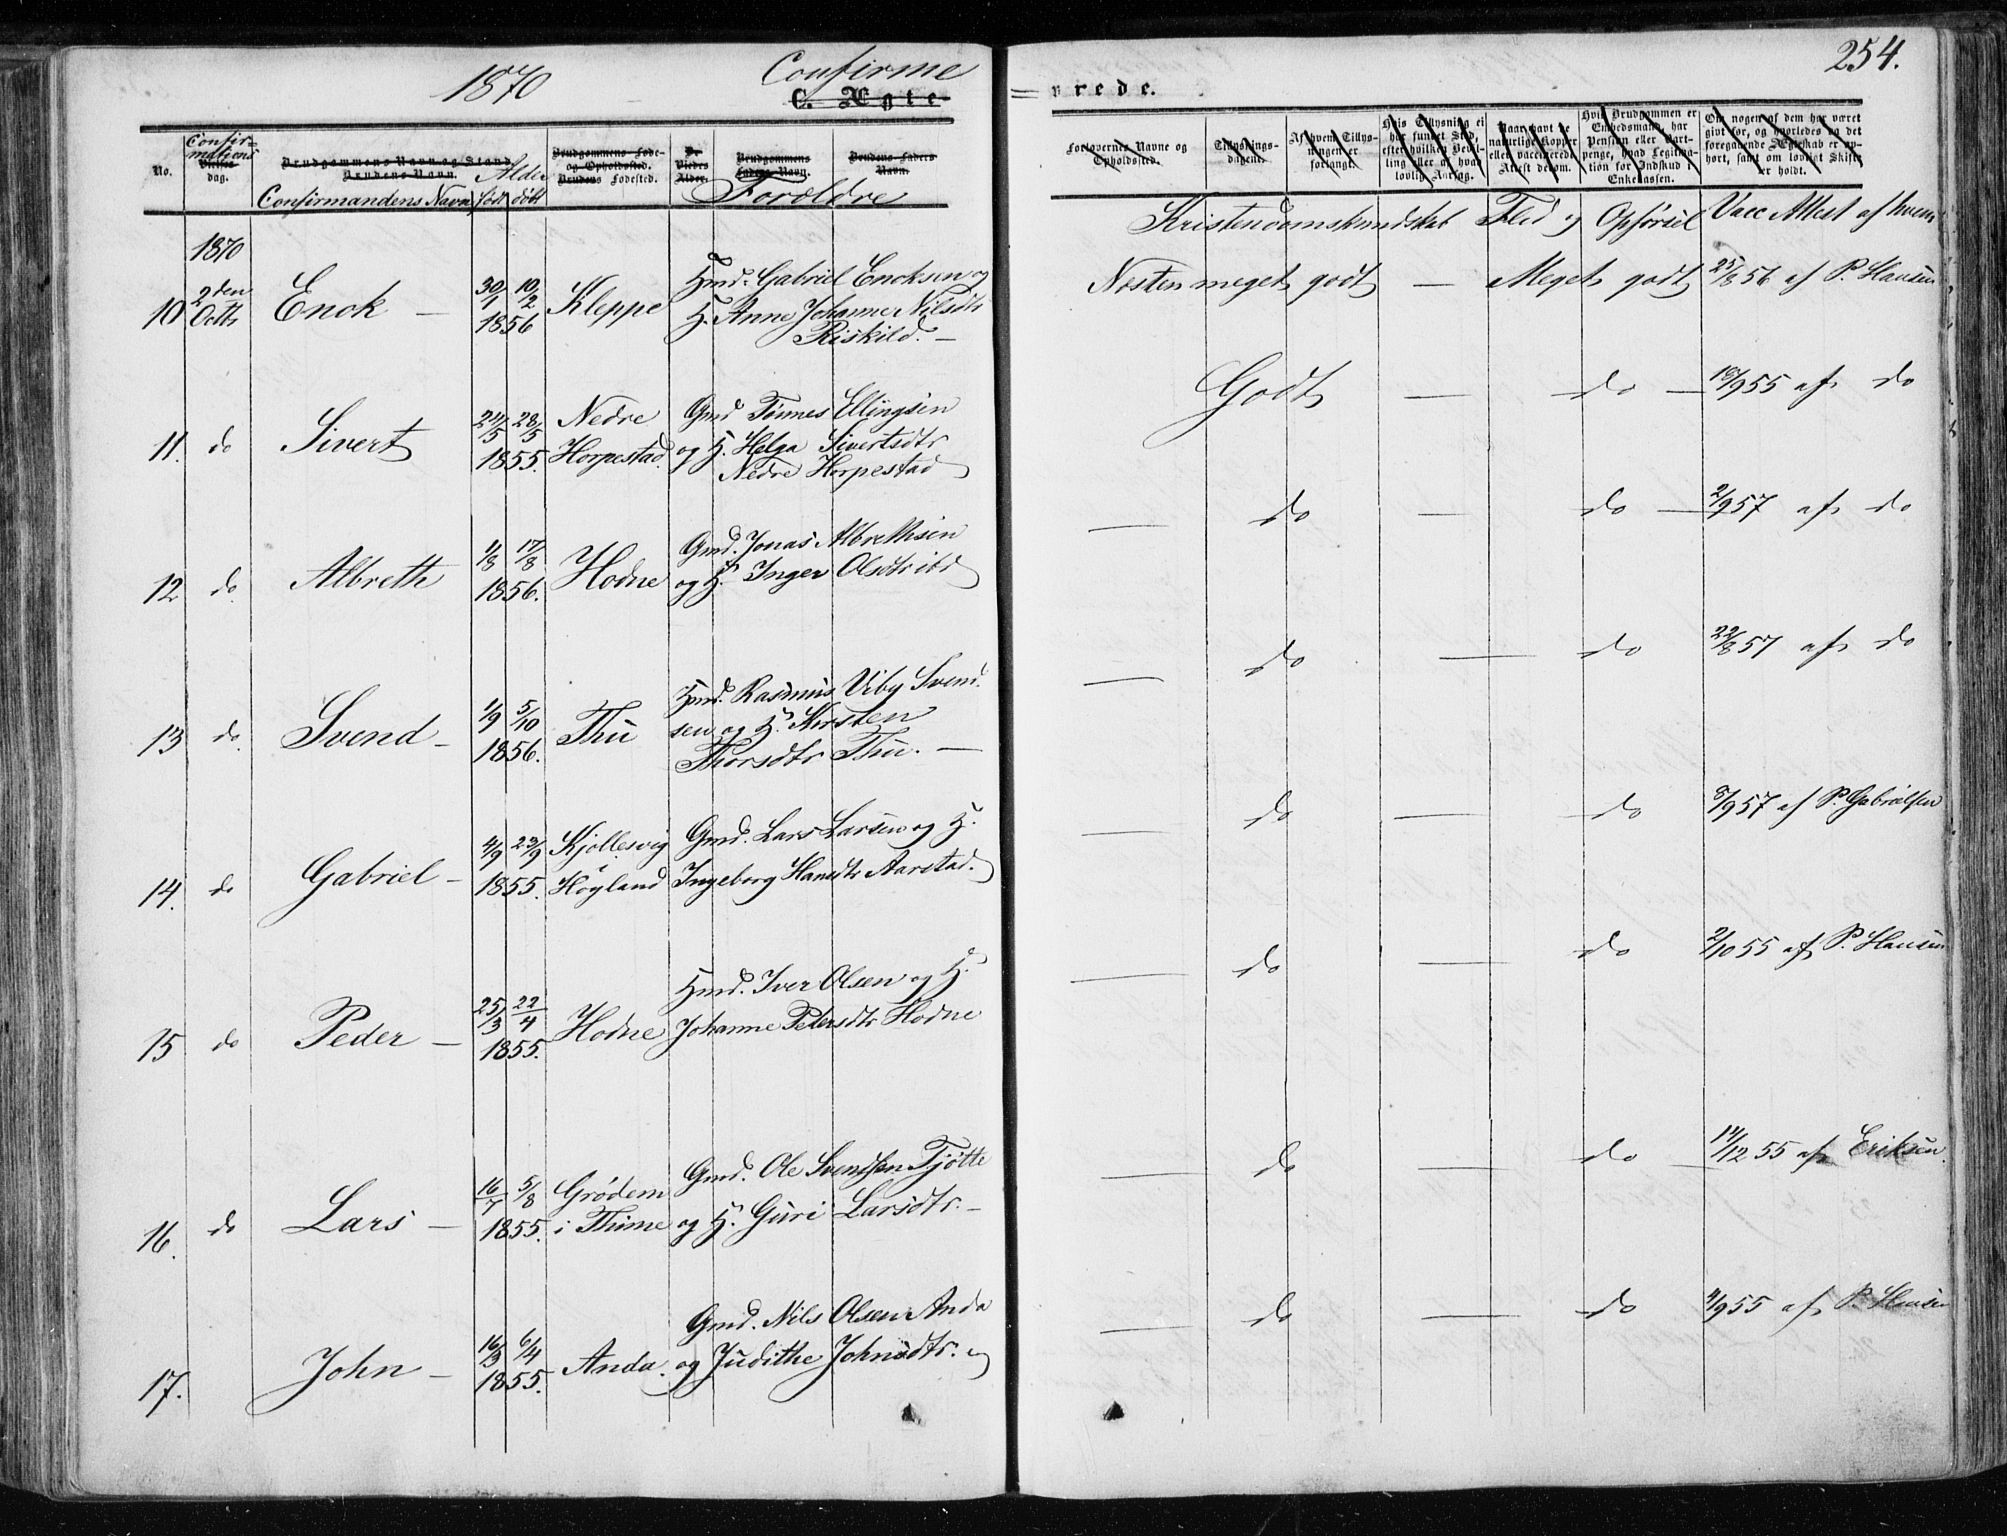 1870
Confirme
C. Ægte
No.
Confir-
mations
Vielses
dag.
Brudgommens Navn og Stand
Brudens Navn.
Confirmandens Navn
Alder
født døbt
Brudgommens Føde-
og Opholdssted.
Brudens Fødested.
De
Viedes
Alder.
Brudgommens
Faders Navn.
Brudens Faders
Navn.
Forældre
1870
10 2den Octb Enok — 30/1 10/2 1856 Kleppe Hmd. Gabriel Enoksen og
H. Anne Johanne Nilsdtr
Riskild. —
11. do Sivert 24/5 28/5 1855. Nedre Horpestad. Gmd Tønnes Ellingsen
og H. Helga Sivertsdtr
Nedre Horpestad
12 do. Albreth 1/8 17/8 1856. Hodne Gmd. Jonas Albrethsen
og H. Inger Olsdtr ibd
13 do. Svend — 1/9 5/10 1856. Thu Hmd. Rasmus Viby Svend-
sen og H. Kirsten
Thorsdtr Thu. —
14. do Gabriel — 4/9 23/9 1855. Kjollesvig i Høgland Gmd. Lars Larsen og H.
Ingeborg Hansdtr Aarstad.
15 do Peder — 25/3 22/4 1855. Hodne Hmd. Iver Olsen og H.
Johanne Pedersdtr Hodne
16. do Lars — 16/7 5/8 1855. Grødem i Thime Gmd. Ole Svendsen Tjøtte
og H. Guri Larsdtr. —
17. John — 16/3 6/4 1855. Anda. Gmd. Nils Olsen Anda
og Judithe Johnsdtr.
254.
vrede.
Forlovernes Navne og
Opholdssted.
Tillysnings-
dagene.
Af hvem Tillys-
ningen er
forlangt.
Hvis Tillysning ei
har fundet Sted,
efter hvilken Bevil-
ling eller af hvad
lovlig Aarsag.
Naar havt de
naturlige Kopper
eller vaccinerede.
Attest derom.
Hvis Brudgommen er
Embedsmand, har
Pension eller Vart-
penge, hvad Legitima-
tion for Indskud i
Enkekassen.
Om nogen af dem har været
gift før, og hvorledes da det
foregaaende Ægteskab er op-
hørt, samt om lovligt Skifte
er holdt.
Kristendomskundskab Flid og Opførsel Vacc Attest af hvem
Næsten meget godt — Meget godt 25/8 56 af P. Hansen
Godt — do — 18/9 55 af do
— do — do — 2/9 57 af do
— do — do 22/8 57 af do
— do — do 8/9 57 af P. Gabrielsen
— do — do 2/10 55 af P. Hansen
— do — do — 14/12 55 af Eriksen.
— do — do 4/9 55 af P. Hansen